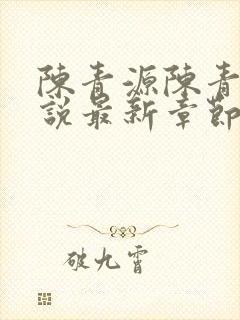 陳青源陳青
說最新章節
破九霄